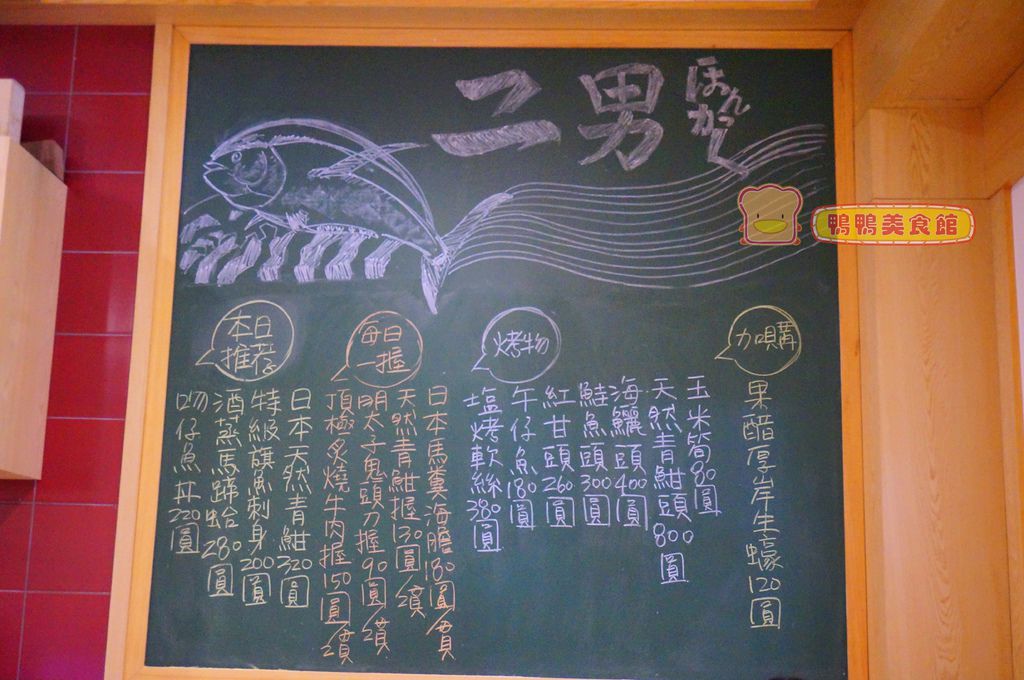 二男
ほんかく
鴨鴨美食館
本日推荐
日本天然青魽320圓
特級旗魚刺身200圓
酒蒸馬蹄蛤280圓
吻仔魚丼220圓
每日一握
日本馬糞海膽180圓/貫
天然青魽握130圓/貫
明太子鬼頭刀握90圓/貫
頂極炙燒牛肉握150圓/貫
烤物
玉米筍80圓
天然青魽頭800圓
海鱺頭400圓
鮭魚頭300圓
紅甘頭260圓
午仔魚180圓
塩烤軟絲380圓
加購
果醋厚岸生蠔120圓